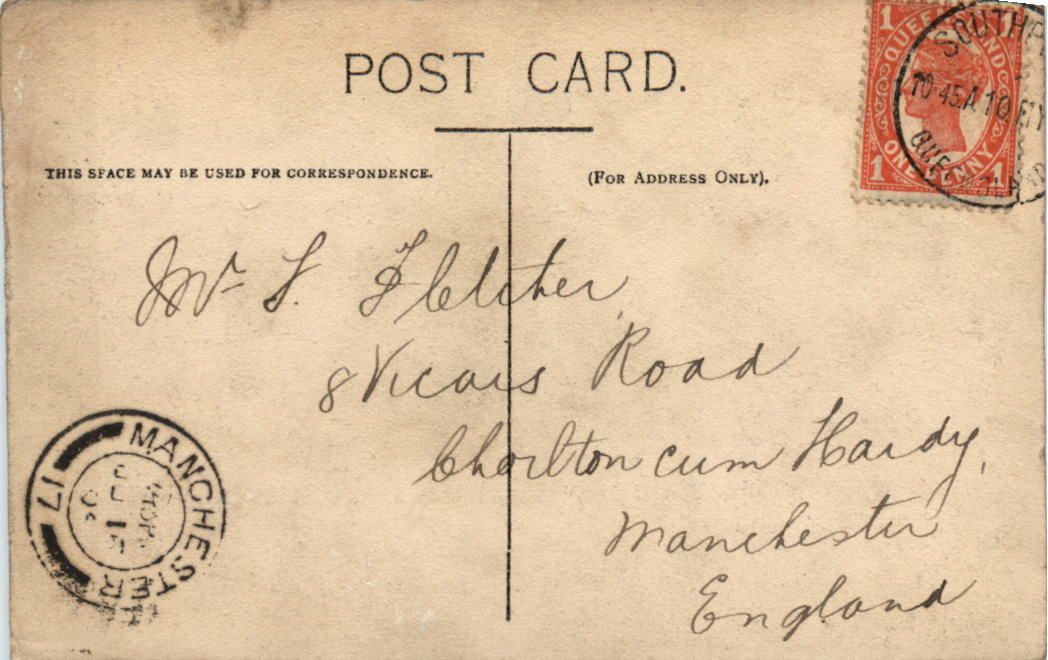 POST CARD.
THIS SPACE MAY BE USED FOR CORRESPONDENCE.
(FOR ADDRESS ONLY).
1 1
QUEENSLAND
ONE PENNY
1 1
10-45A 10
QUEENSLAND
Mr
Fletcher
8 Vicars Road
Chorlton cum Hardy,
Manchester
England
MANCHESTER
17